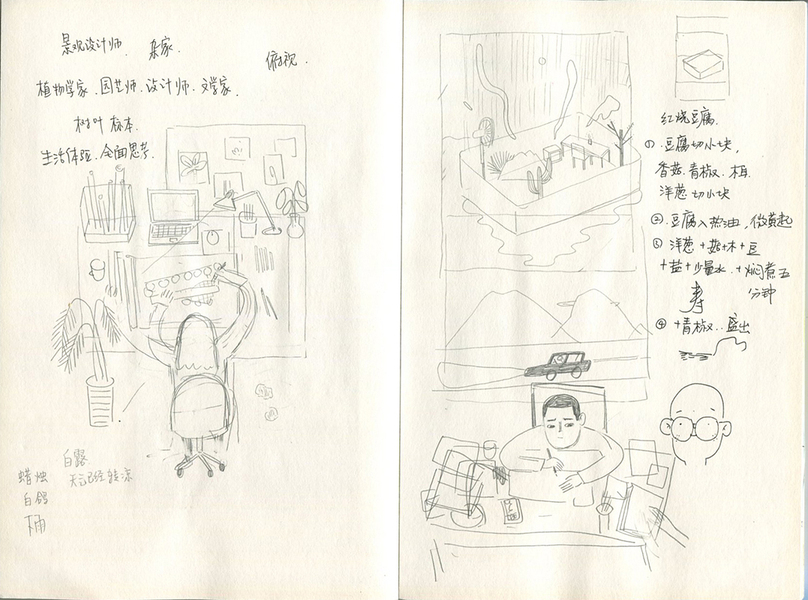 景观设计师. 杂家.
俯视.
植物学家.园艺师.设计师.文学家.
树叶 标本.
生活体验.全面思考.
白露
天已经转凉
蜡烛
白鸽
下雨
红烧豆腐.
①.豆腐切小块,
香菇.青椒.木耳
洋葱 切小块
②.豆腐入热油,微黄起
③ 洋葱+菇+木+豆
+盐+少量水.+焖煮五
分钟
寿
④ +青椒..盛出